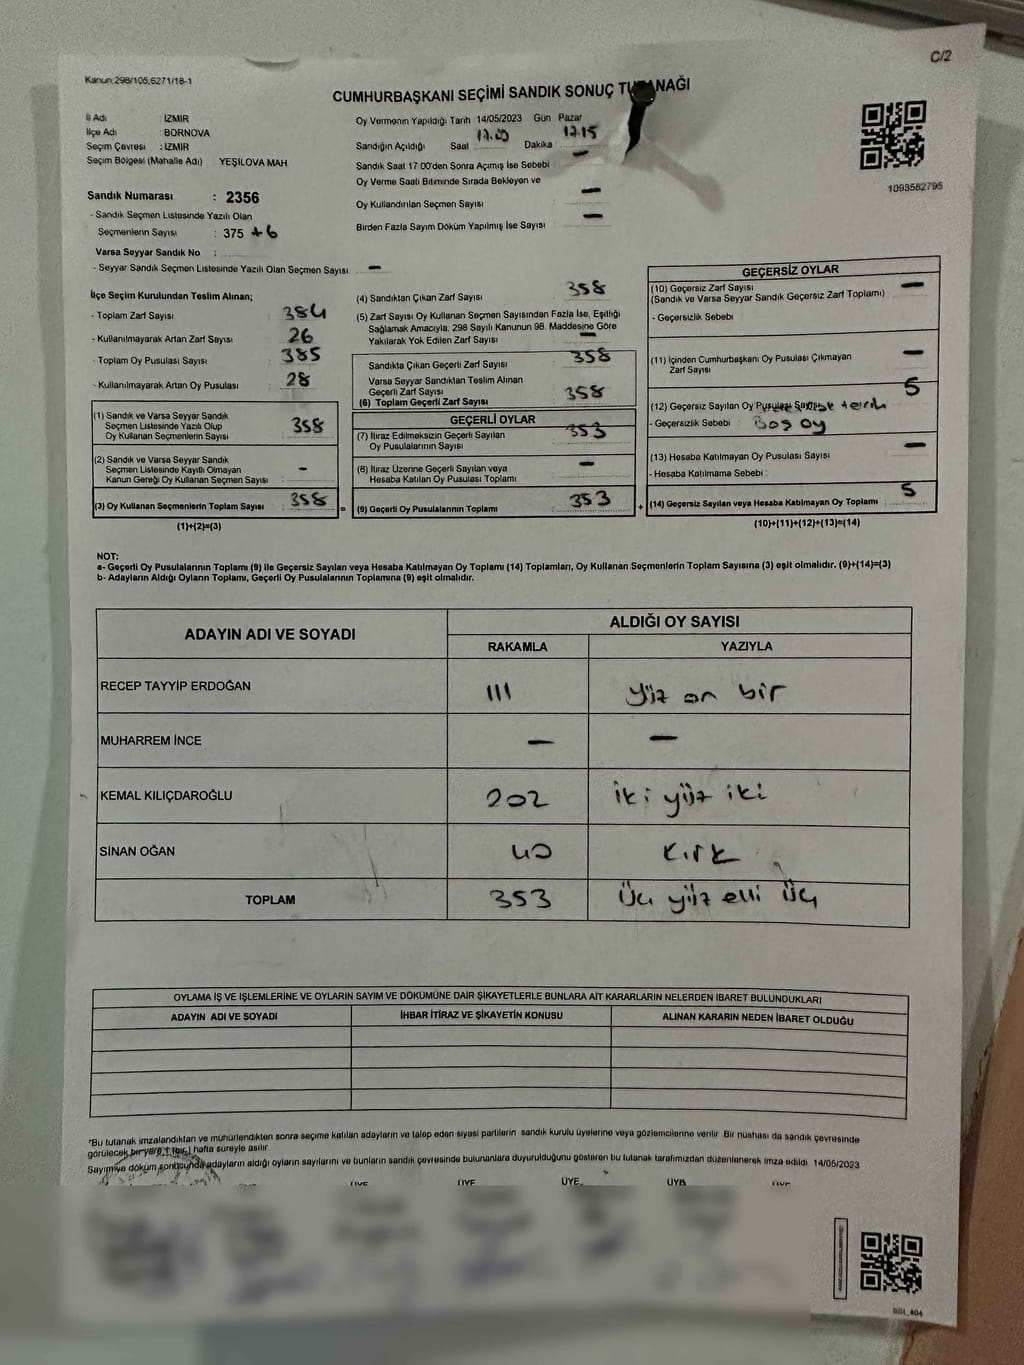 C/2
Kanun:298/105,6271/18-1
CUMHURBAŞKANI SEÇİMİ SANDIK SONUÇ TU NAĞI
İl Adı : İZMİR
İlçe Adı : BORNOVA
Seçim Çevresi : İZMİR
Seçim Bölgesi (Mahalle Adı) YEŞİLOVA MAH
Sandık Numarası : 2356
- Sandık Seçmen Listesinde Yazılı Olan
Seçmenlerin Sayısı : 375 +6
Varsa Seyyar Sandık No :
- Seyyar Sandık Seçmen Listesinde Yazılı Olan Seçmen Sayısı —
Oy Vermenin Yapıldığı Tarih 14/05/2023 Gün Pazar
Sandığın Açıldığı Saat 17.00 Dakika 17.15
Sandık Saat 17:00'den Sonra Açımış İse Sebebi —
Oy Verme Saati Bitiminde Sırada Bekleyen ve
Oy Kullandırılan Seçmen Sayısı —
Birden Fazla Sayım Döküm Yapılmış İse Sayısı —
1093582795
İlçe Seçim Kurulundan Teslim Alınan;
- Toplam Zarf Sayısı : 384
- Kullanılmayarak Artan Zarf Sayısı : 26
- Toplam Oy Pusulası Sayısı : 385
- Kullanılmayarak Artan Oy Pusulası : 28
(1) Sandık ve Varsa Seyyar Sandık
Seçmen Listesinde Yazılı Olup
Oy Kullanan Seçmenlerin Sayısı : 358
(2) Sandık ve Varsa Seyyar Sandık
Seçmen Listesinde Kayıtlı Olmayan
Kanun Gereği Oy Kullanan Seçmen Sayısı : -
(3) Oy Kullanan Seçmenlerin Toplam Sayısı : 358
(1)+(2)=(3)
=
(4) Sandıktan Çıkan Zarf Sayısı : 358
(5) Zarf Sayısı Oy Kullanan Seçmen Sayısından Fazla İse, Eşitliği
Sağlamak Amacıyla, 298 Sayılı Kanunun 98. Maddesine Göre
Yakılarak Yok Edilen Zarf Sayısı : —
Sandıkta Çıkan Geçerli Zarf Sayısı : 358
Varsa Seyyar Sandıktan Teslim Alınan
Geçerli Zarf Sayısı
(6) Toplam Geçerli Zarf Sayısı : 358
GEÇERLİ OYLAR
(7) İtiraz Edilmeksizin Geçerli Sayılan
Oy Pusulalarının Sayısı : 353
(8) İtiraz Üzerine Geçerli Sayılan veya
Hesaba Katılan Oy Pusulası Toplamı : —
(9) Geçerli Oy Pusulalarının Toplamı : 353
+
GEÇERSİZ OYLAR
(10) Geçersiz Zarf Sayısı —
(Sandık ve Varsa Seyyar Sandık Geçersiz Zarf Toplamı)
- Geçersizlik Sebebi :
(11) İçinden Cumhurbaşkanı Oy Pusulası Çıkmayan
Zarf Sayısı —
(12) Geçersiz Sayılan Oy Pusulası Sayısı 5
- Geçersizlik Sebebi : Boş oy
(13) Hesaba Katılmayan Oy Pusulası Sayısı —
- Hesaba Katılmama Sebebi :
(14) Geçersiz Sayılan veya Hesaba Katılmayan Oy Toplamı : 5
(10)+(11)+(12)+(13)=(14)
NOT:
a- Geçerli Oy Pusulalarının Toplamı (9) ile Geçersiz Sayılan veya Hesaba Katılmayan Oy Toplamı (14) Toplamları, Oy Kullanan Seçmenlerin Toplam Sayısına (3) eşit olmalıdır. (9)+(14)=(3)
b- Adayların Aldığı Oyların Toplamı, Geçerli Oy Pusulalarının Toplamına (9) eşit olmalıdır.
ADAYIN ADI VE SOYADI
ALDIĞI OY SAYISI
RAKAMLA YAZIYLA
RECEP TAYYİP ERDOĞAN 111 yüz on bir
MUHARREM İNCE — —
KEMAL KILIÇDAROĞLU 202 iki yüz iki
SİNAN OĞAN 40 kırk
TOPLAM 353 Üç yüz elli üç
OYLAMA İŞ VE İŞLEMLERİNE VE OYLARIN SAYIM VE DÖKÜMÜNE DAİR ŞİKAYETLERLE BUNLARA AİT KARARLARIN NELERDEN İBARET BULUNDUKLARI
ADAYIN ADI VE SOYADI İHBAR İTİRAZ VE ŞİKAYETİN KONUSU ALINAN KARARIN NEDEN İBARET OLDUĞU
*Bu tutanak imzalandıktan ve mühürlendikten sonra seçime katılan adayların ve talep eden siyasi partilerin sandık kurulu üyelerine veya gözlemcilerine verilir. Bir nüshası da sandık çevresinde
görülecek bir yere 1 (bir) hafta süreyle asılır.
Sayım ve döküm sonucunda adayların aldığı oyların sayılarını ve bunların sandık çevresinde bulunanlara duyurulduğunu gösteren bu tutanak tarafımızdan düzenlenerek imza edildi. 14/05/2023
ÜYE ÜYE ÜYE ÜYE ÜYE